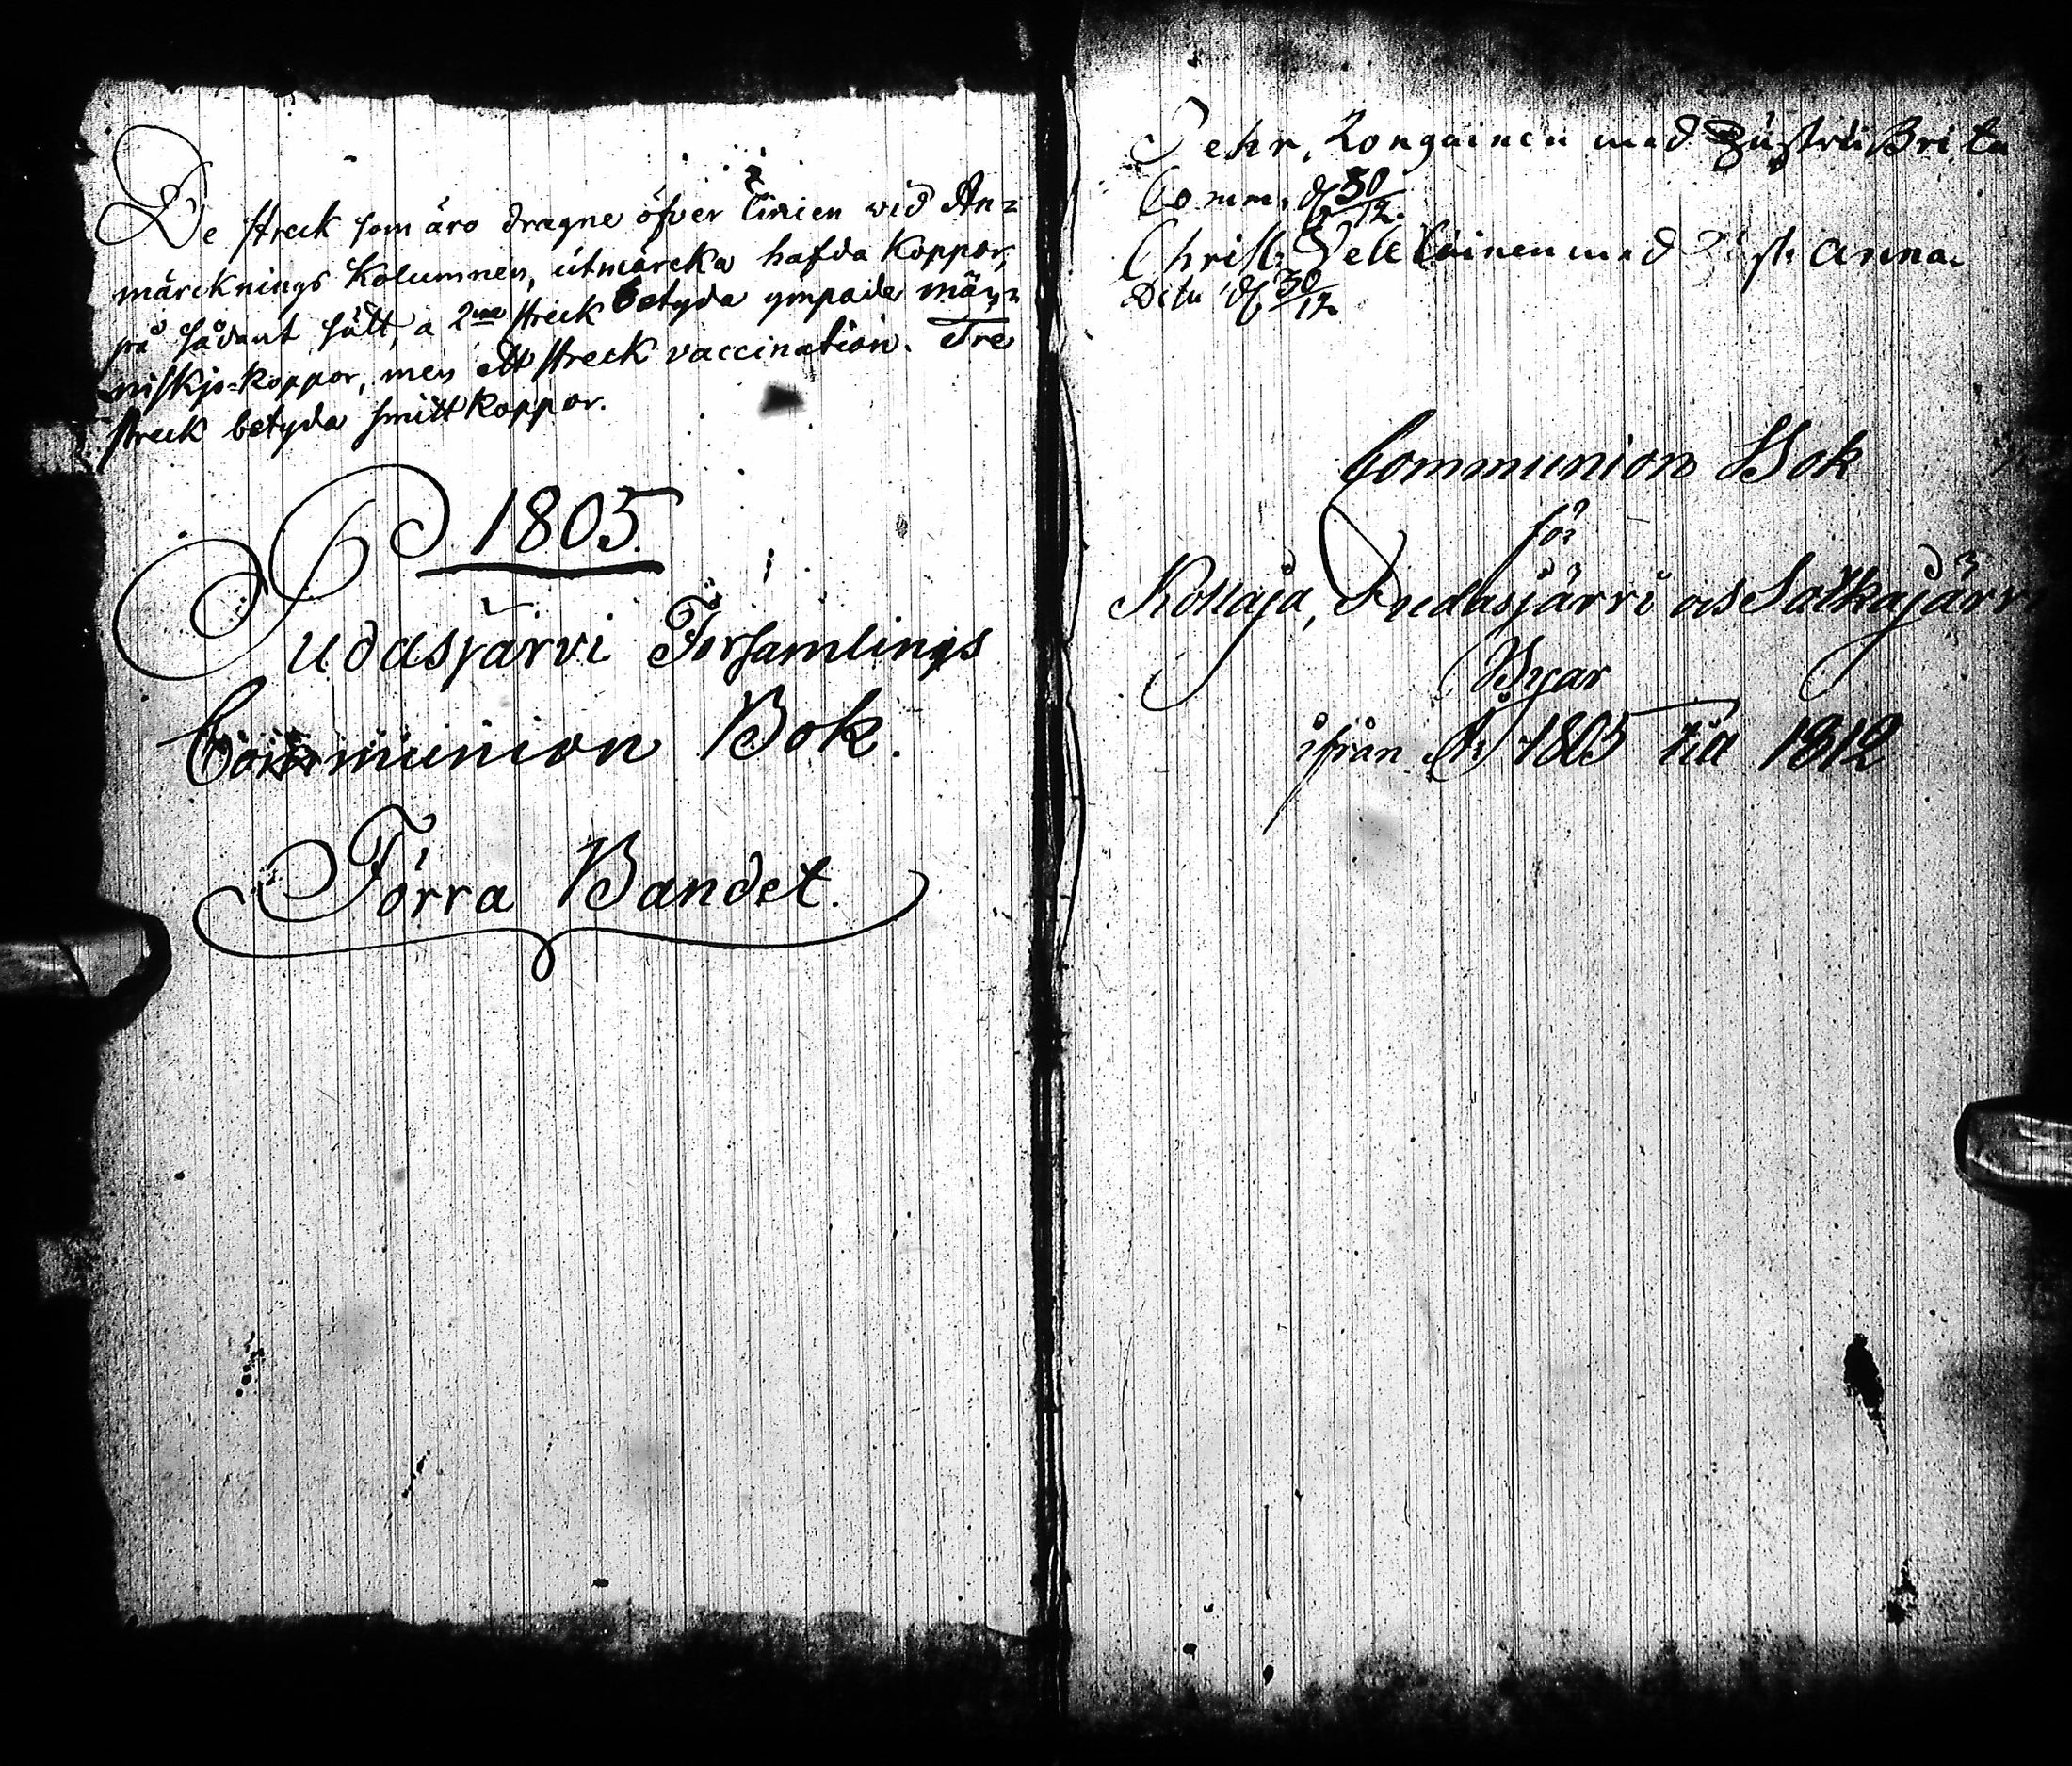 De streck som äro dragne öfver Linien vid An=
märcknings Kolumnen, utmärcka hafda Koppor,
på sådant sätt, a 2ne streck betyda ympade män=
niskjo-koppor, men ett streck vaccination. Tre
streck betyda smittkoppor.
1805.
Pudasjärvi Församlings
Communion Bok.
Förra Bandet.
Pehr, Rongainen med Hustru Brita
Comm. d. 30/12.
Christ. med Anna
d. 30/12
Communion Bok
för
Kollaja, Pudasjärvi och Sotkajärvi
Byar
ifrån År 1805 till 1812